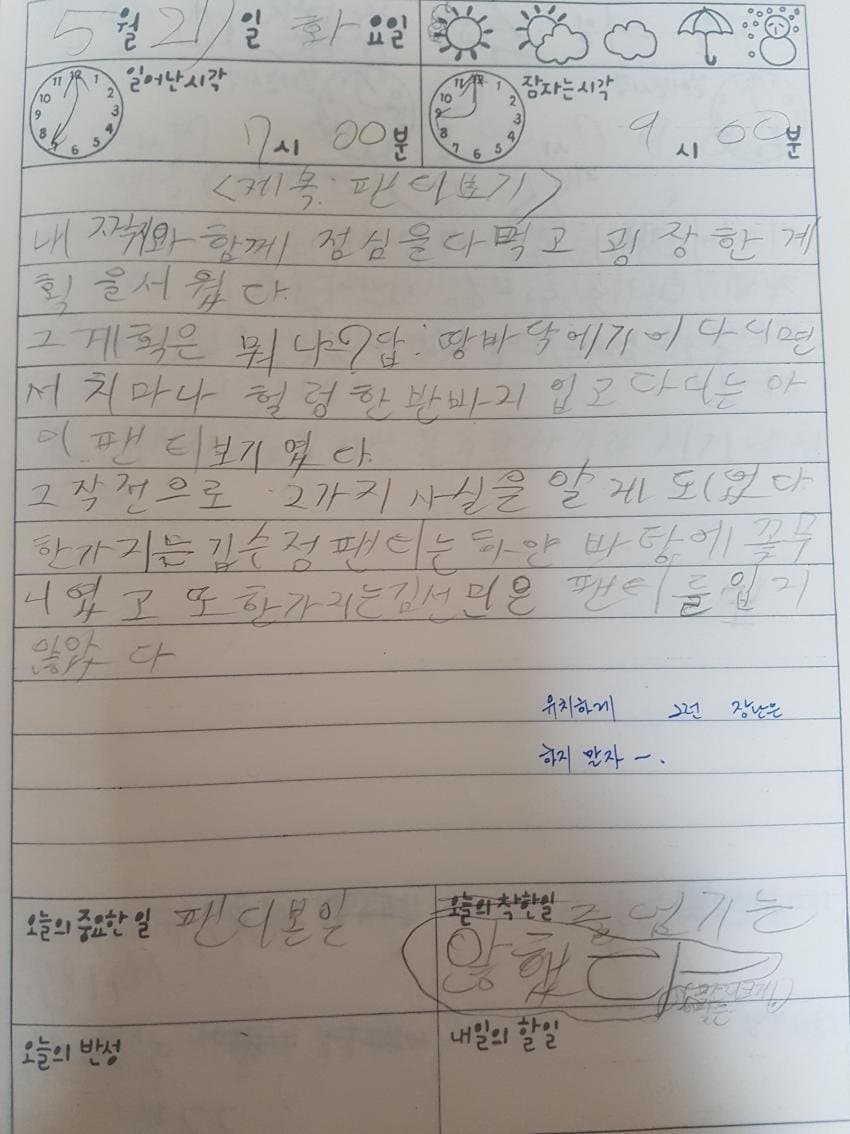 5월 21일 화요일
일어난시각
7시 00분
잠자는시각
9시 60분
<제목: 팬티보기>
내 짝꿔와 함께 점심을 다먹고 굉장한 계
획을서웠다.
그 계획은 뭐냐? 답: 땅바닥에기어다니면
서 치마나 헐렁한 반바지 입고다니는 아
이 팬티보기 였다.
그 작전으로 2가지 사실을 알게 되였다
한가지는 김수정 팬티는 하얀 바탕에 꽃무
니였고 또 한가지는김선민은 팬티를입지
않았다
유치하게 그런 장난은
하지 말자 ー.
오늘의 중요한 일 팬티본일
오늘의 착한일 줄넘기는
않했다
오늘의 반성
내일의 할일